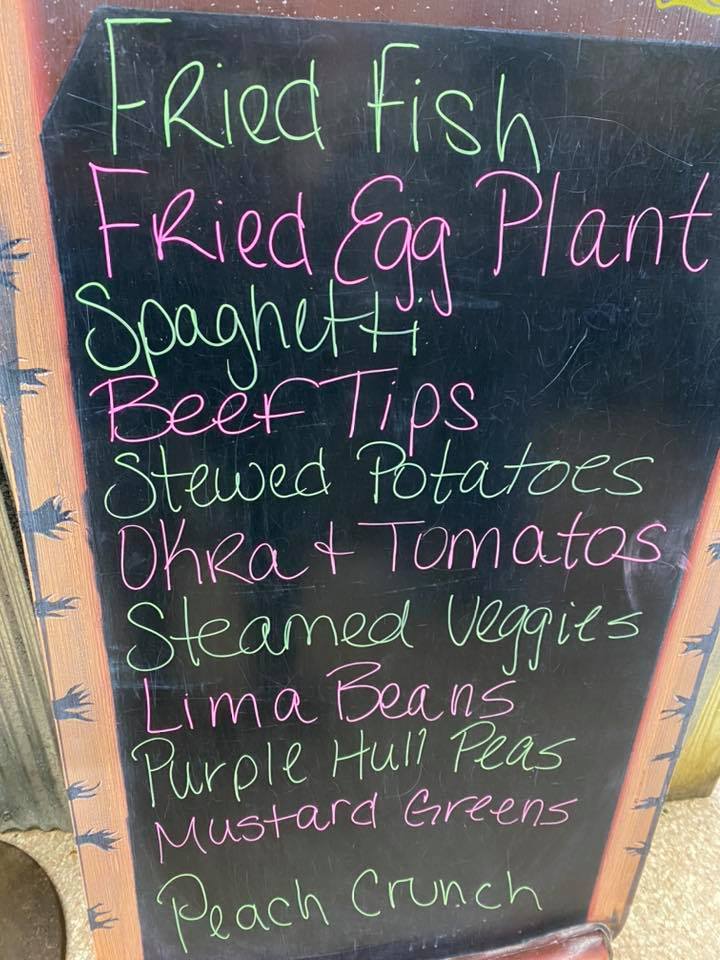 Fried Fish
Fried Egg Plant
Spaghetti
Beef Tips
Stewed Potatoes
Okra + Tomatos
Steamed Veggies
Lima Beans
Purple Hull Peas
Mustard Greens
Peach Crunch